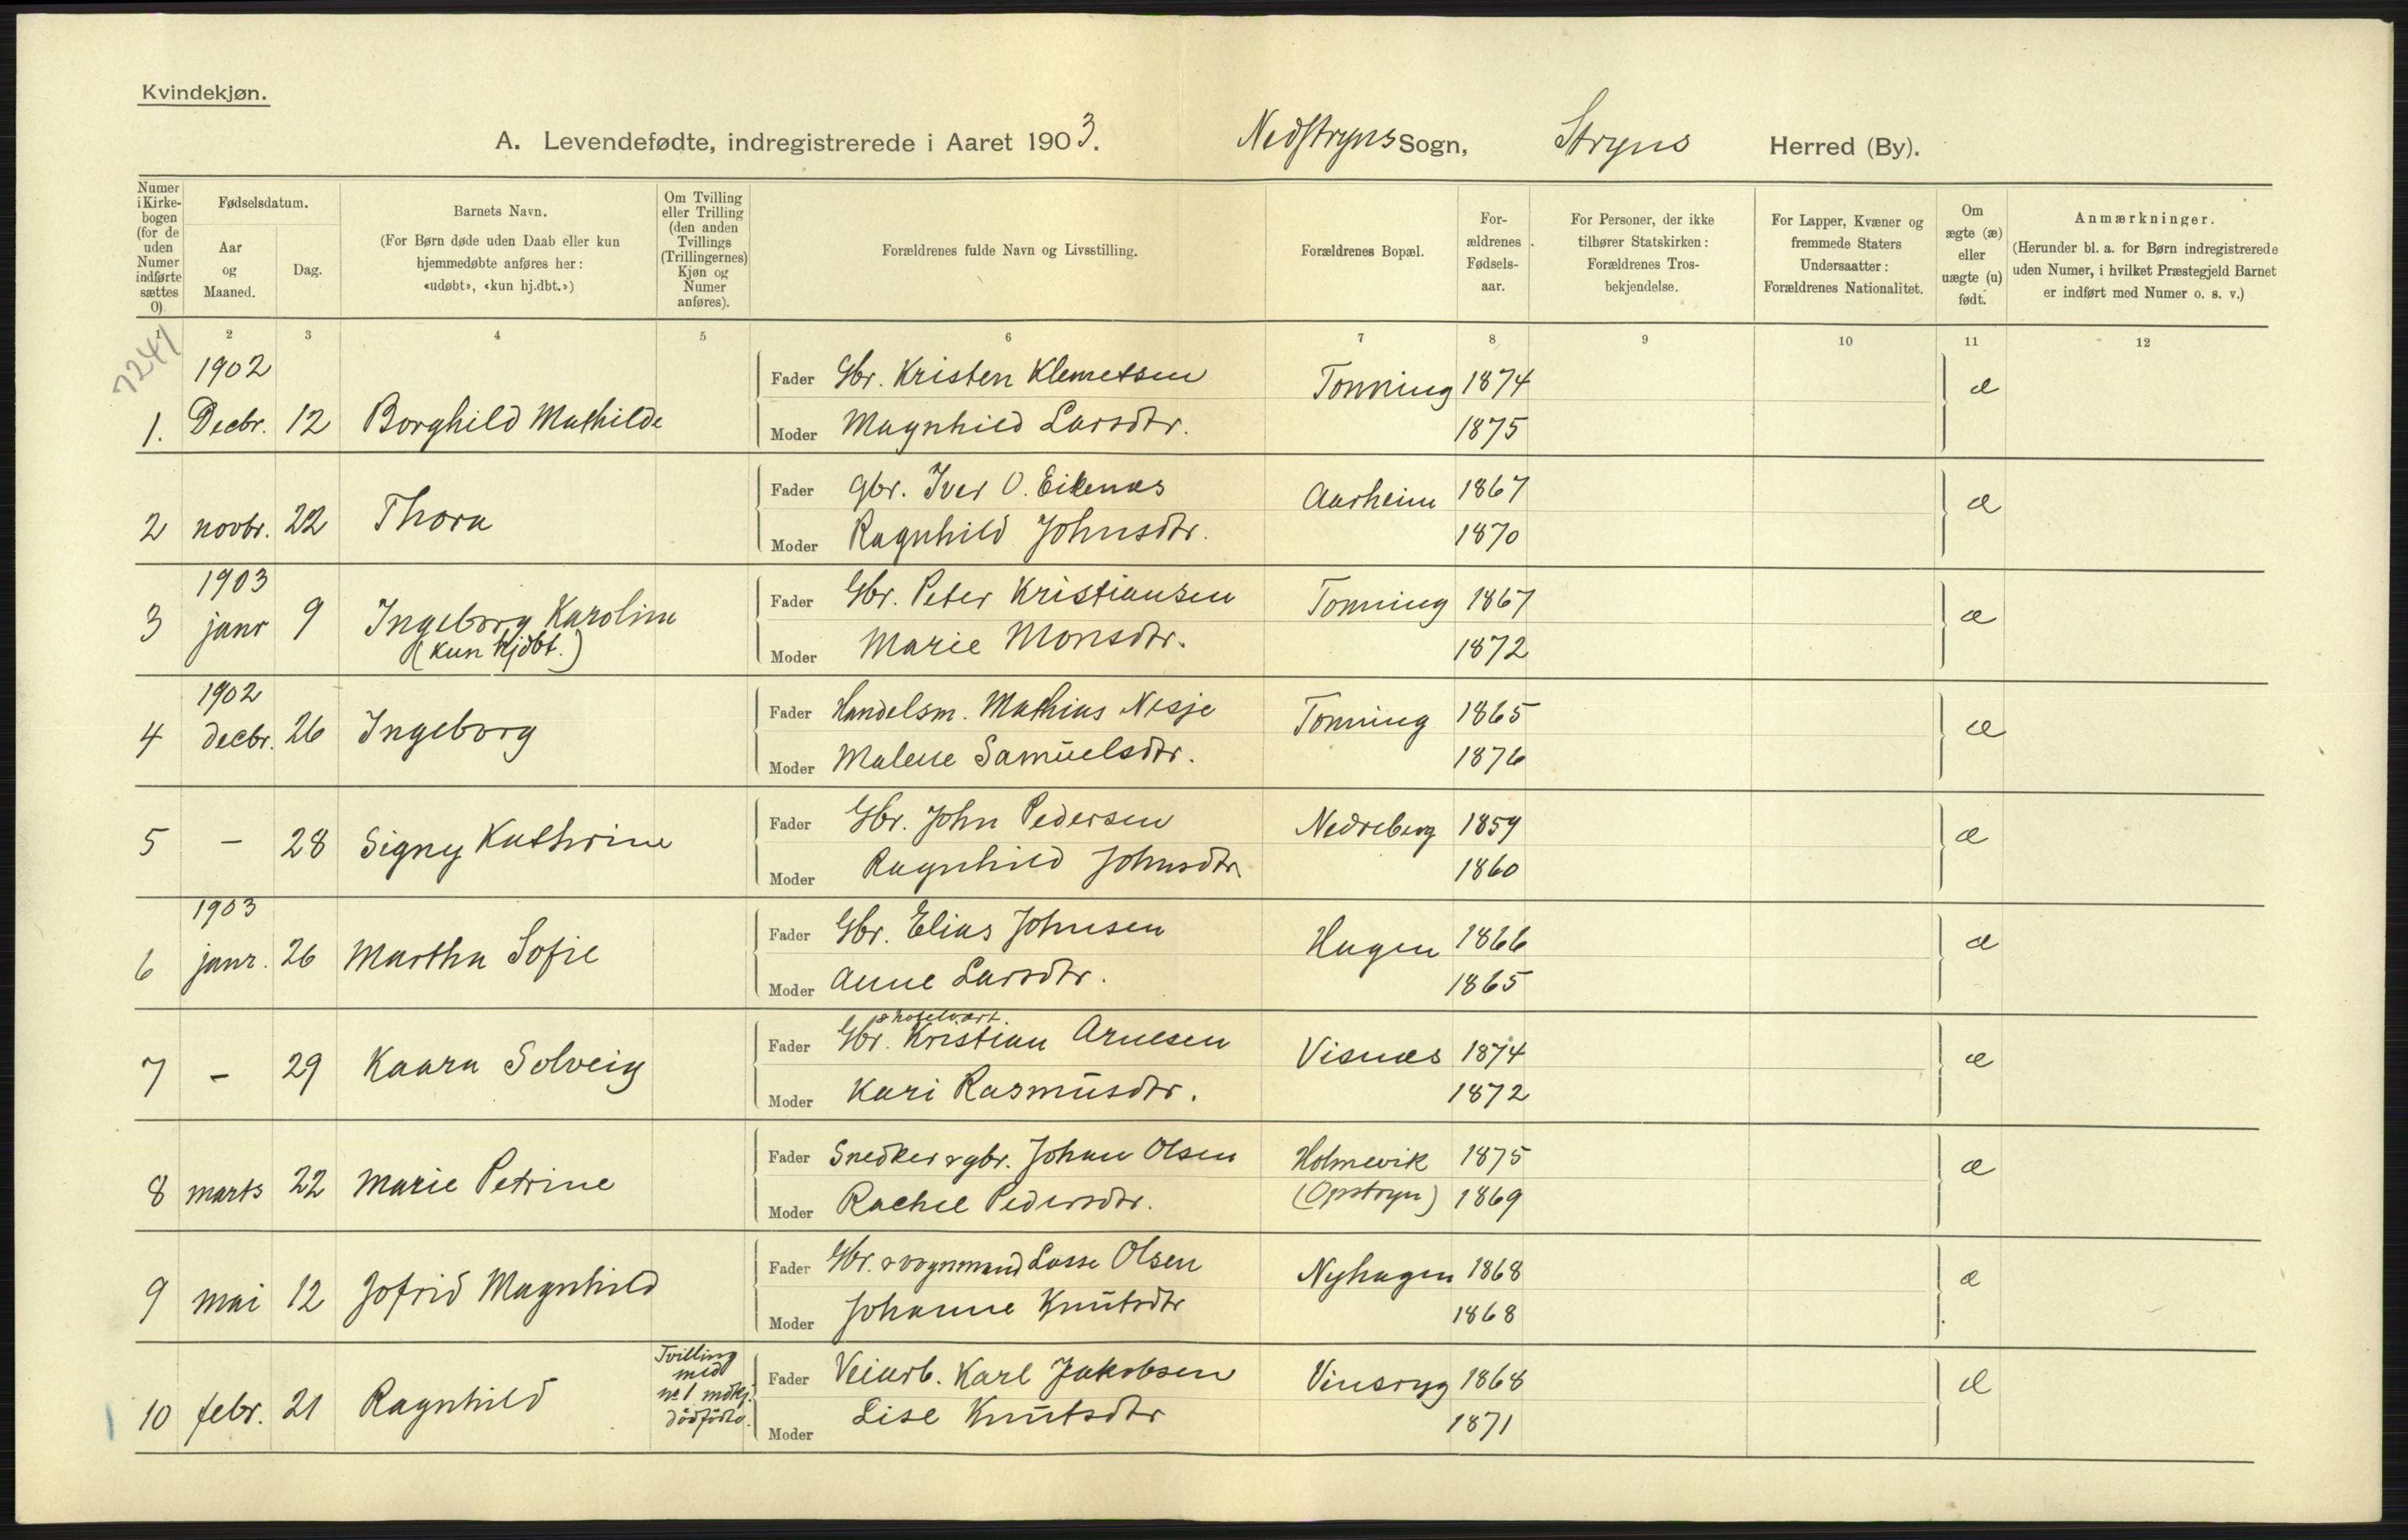 Kvindekjøn.
A. Levendefødte, indregistrerede i Aaret 1903. Nedstryns Sogn, Stryns Herred (By).
Numer i Kirkebogen (for de uden Numer indførte sættes 0)
Fødselsdatum.
Aar og Maaned.
Dag.
Barnets Navn.
(For Børn døde uden Daab eller kun hjemmedøbte anføres her: «udøbt», «kun hj.dbt.»)
Om Tvilling eller Trilling (den anden Tvillings (Trillingernes) Kjøn og Numer anføres).
Forældrenes fulde Navn og Livsstilling.
Forældrenes Bopæl.
For-ældrenes Fødsels-aar.
For Personer, der ikke tilhører Statskirken: Forældrenes Tros-bekjendelse.
For Lapper, Kvæner og fremmede Staters Undersaatter: Forældrenes Nationalitet.
Om ægte (æ) eller uægte (u) født.
Anmærkninger.
(Herunder bl. a. for Børn indregistrerede uden Numer, i hvilket Præstegjeld Barnet er indført med Numer o. s. v.)
1 2 3 4 5 6 7 8 9 10 11 12
7241
1902
1. Decbr. 12 Borghild Mathilde Fader Gbr. Kristen Klemetsen Tonning 1874 æ
Moder Magnhild Larsdtr. 1875
2 novbr. 22 Thora Fader gbr. Iver O. Eikenæs Aarheim 1867 æ
Moder Ragnhild Johnsdtr. 1870
1903
3 janr 9 Ingeborg Karoline (kun hjdbt.) Fader Gbr. Peter Kristiansen Tonning 1867 æ
Moder Marie Monsdtr. 1872
1902
4 decbr. 26 Ingeborg Fader Handelsm. Mathias Nesje Tonning 1865 æ
Moder Malene Samuelsdtr. 1876
5 - 28 Signy Kathrine Fader Gbr. John Pedersen Nedreberg 1859 æ
Moder Ragnhild Johnsdtr 1860
1903
6 janr. 26 Martha Sofie Fader Gbr. Elias Johnsen Hagen 1866 æ
Moder Anne Larsdtr. 1865
& hotelvært.
7 - 29 Kaara Solveig Fader Gbr. Kristian Arnesen Visnæs 1874 æ
Moder Kari Rasmusdtr. 1872
8 marts 22 Marie Petrine Fader Snedker & gbr. Johan Olsen Holmevik 1875 æ
Moder Rachel Pedersdtr. (Opstryn) 1869
9 mai 12 Jofrid Magnhild Fader Gbr. & vognmand Lasse Olsen Nyhagen 1868 æ
Moder Johanne Knutsdtr 1868
10 febr. 21 Ragnhild Tvilling med no 1 mdkj. dödfödte. Fader Veiarb. Karl Jakobsen Vinsryg 1868 æ
Moder Lise Knutsdtr 1871